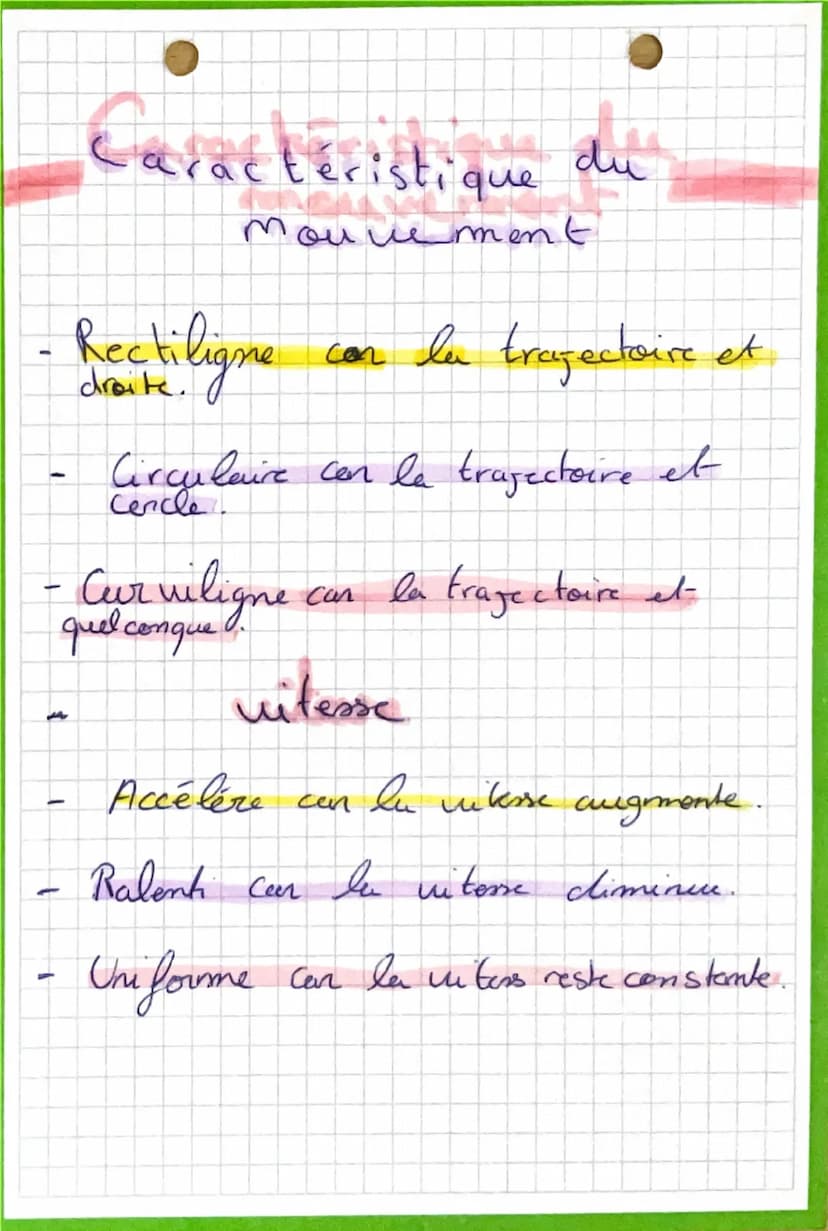 Caractéristique du
mouvement
- Rectiligne car la trajectoire et
droite.
- Circulaire car la trajectoire et
cercle.
- Curviligne car la trajectoire et
quelconque.
- vitesse
- Accélére car la vitesse augmente.
- Ralenti car la vitesse diminue.
- Uniforme car la vitess reste constante.